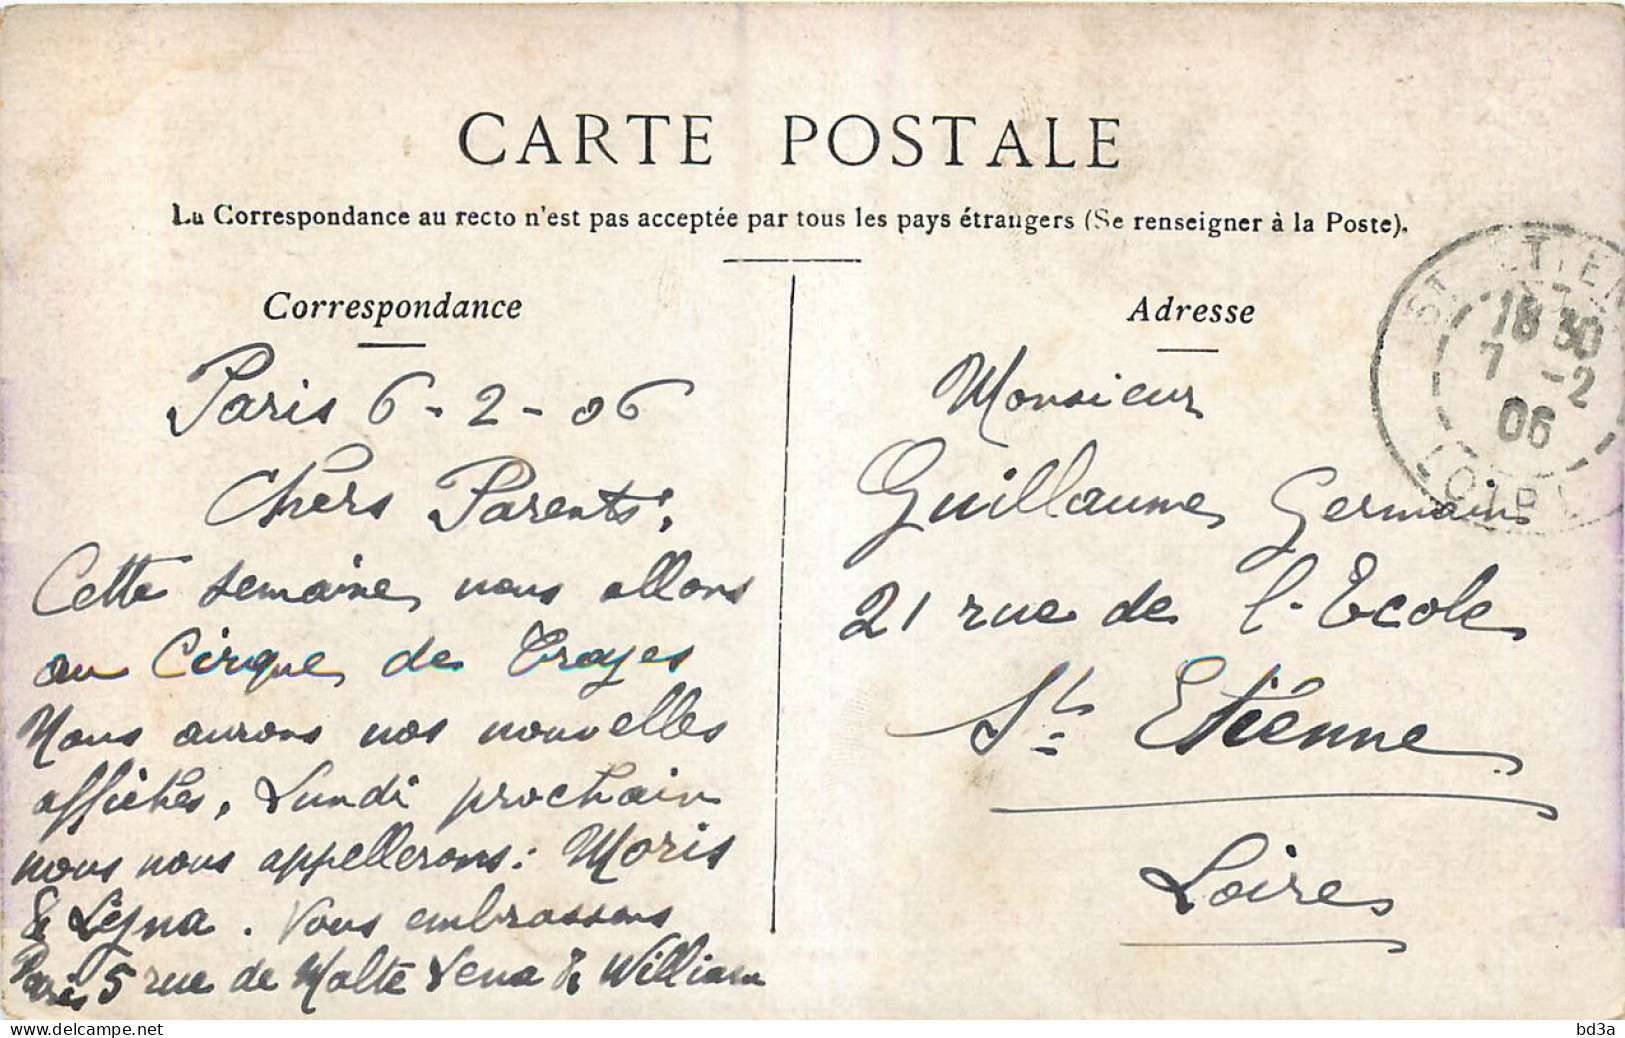 CARTE POSTALE
La Correspondance au recto n'est pas acceptée par tous les pays étrangers (Se renseigner à la Poste).
Correspondance
Paris 6-2-06
Chers Parents,
Cette semaine nous allons
au Cirque de Troyes
Nous aurons nos nouvelles
affiches, Lundi prochain
nous nous appellerons: Moris
& Léjna. Vous embrassons
Paris 5 rue de Malte Lena & William
Adresse
Monsieur
Guillaume Germain
21 rue de l'Ecole
St Etienne
Loire
ST ETIEN
18 30
7 -2
06
LOIRE
delcampe.net
bd3a